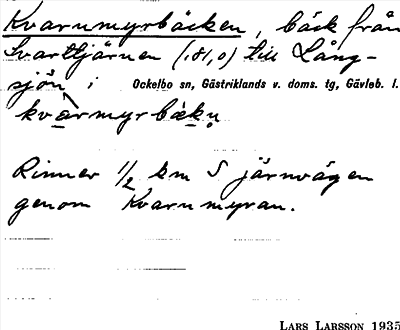 Kvarnmyrbäcken, bäck från
Svarttjärnen (181,0) till Lång-
sjön i Ockelbo sn, Gästriklands v. doms. tg, Gävleb. l.
kvarmyrbäkn
Rinner 1/2 km S järnvägen
genom Kvarnmyran.
LARS LARSSON 1935